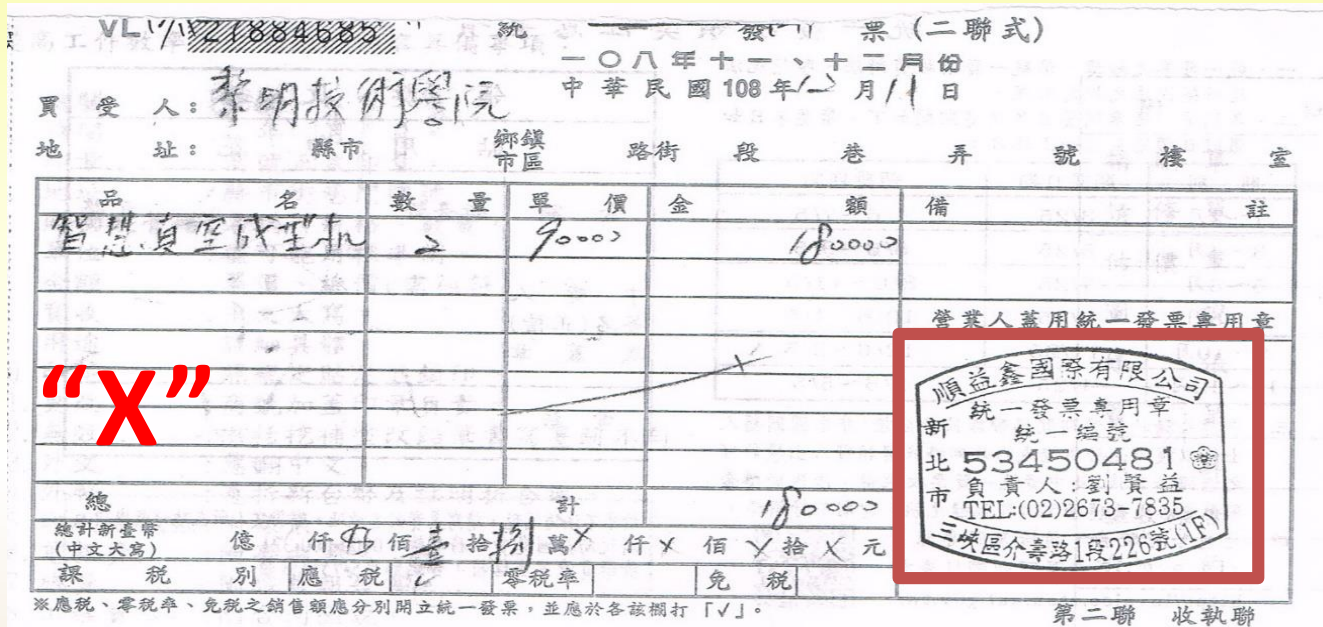 VL 27884685 統一發票 (二聯式)
一〇八年十一、十二月份
中華民國 108 年 12 月 11 日
買受人: 黎明技術學院
地址: 縣市 鄉鎮市區 路街 段 巷 弄 號 樓 室
品名 數量 單價 金額 備註
智慧真空成型机 2 90000 180000
營業人蓋用統一發票專用章
“X”
順益鑫國際有限公司
統一發票專用章
新北市
統一編號
53450481
負責人:劉賢益
TEL:(02)2673-7835
三峽區介壽路1段226號(1F)
總計 180000
總計新臺幣(中文大寫) 億 仟 佰 壹 拾 捌 萬 X 仟 X 佰 X 拾 X 元
課稅別 應稅 零稅率 免稅
※應稅、零稅率、免稅之銷售額應分別開立統一發票,並應於各該欄打「√」。
第二聯 收執聯